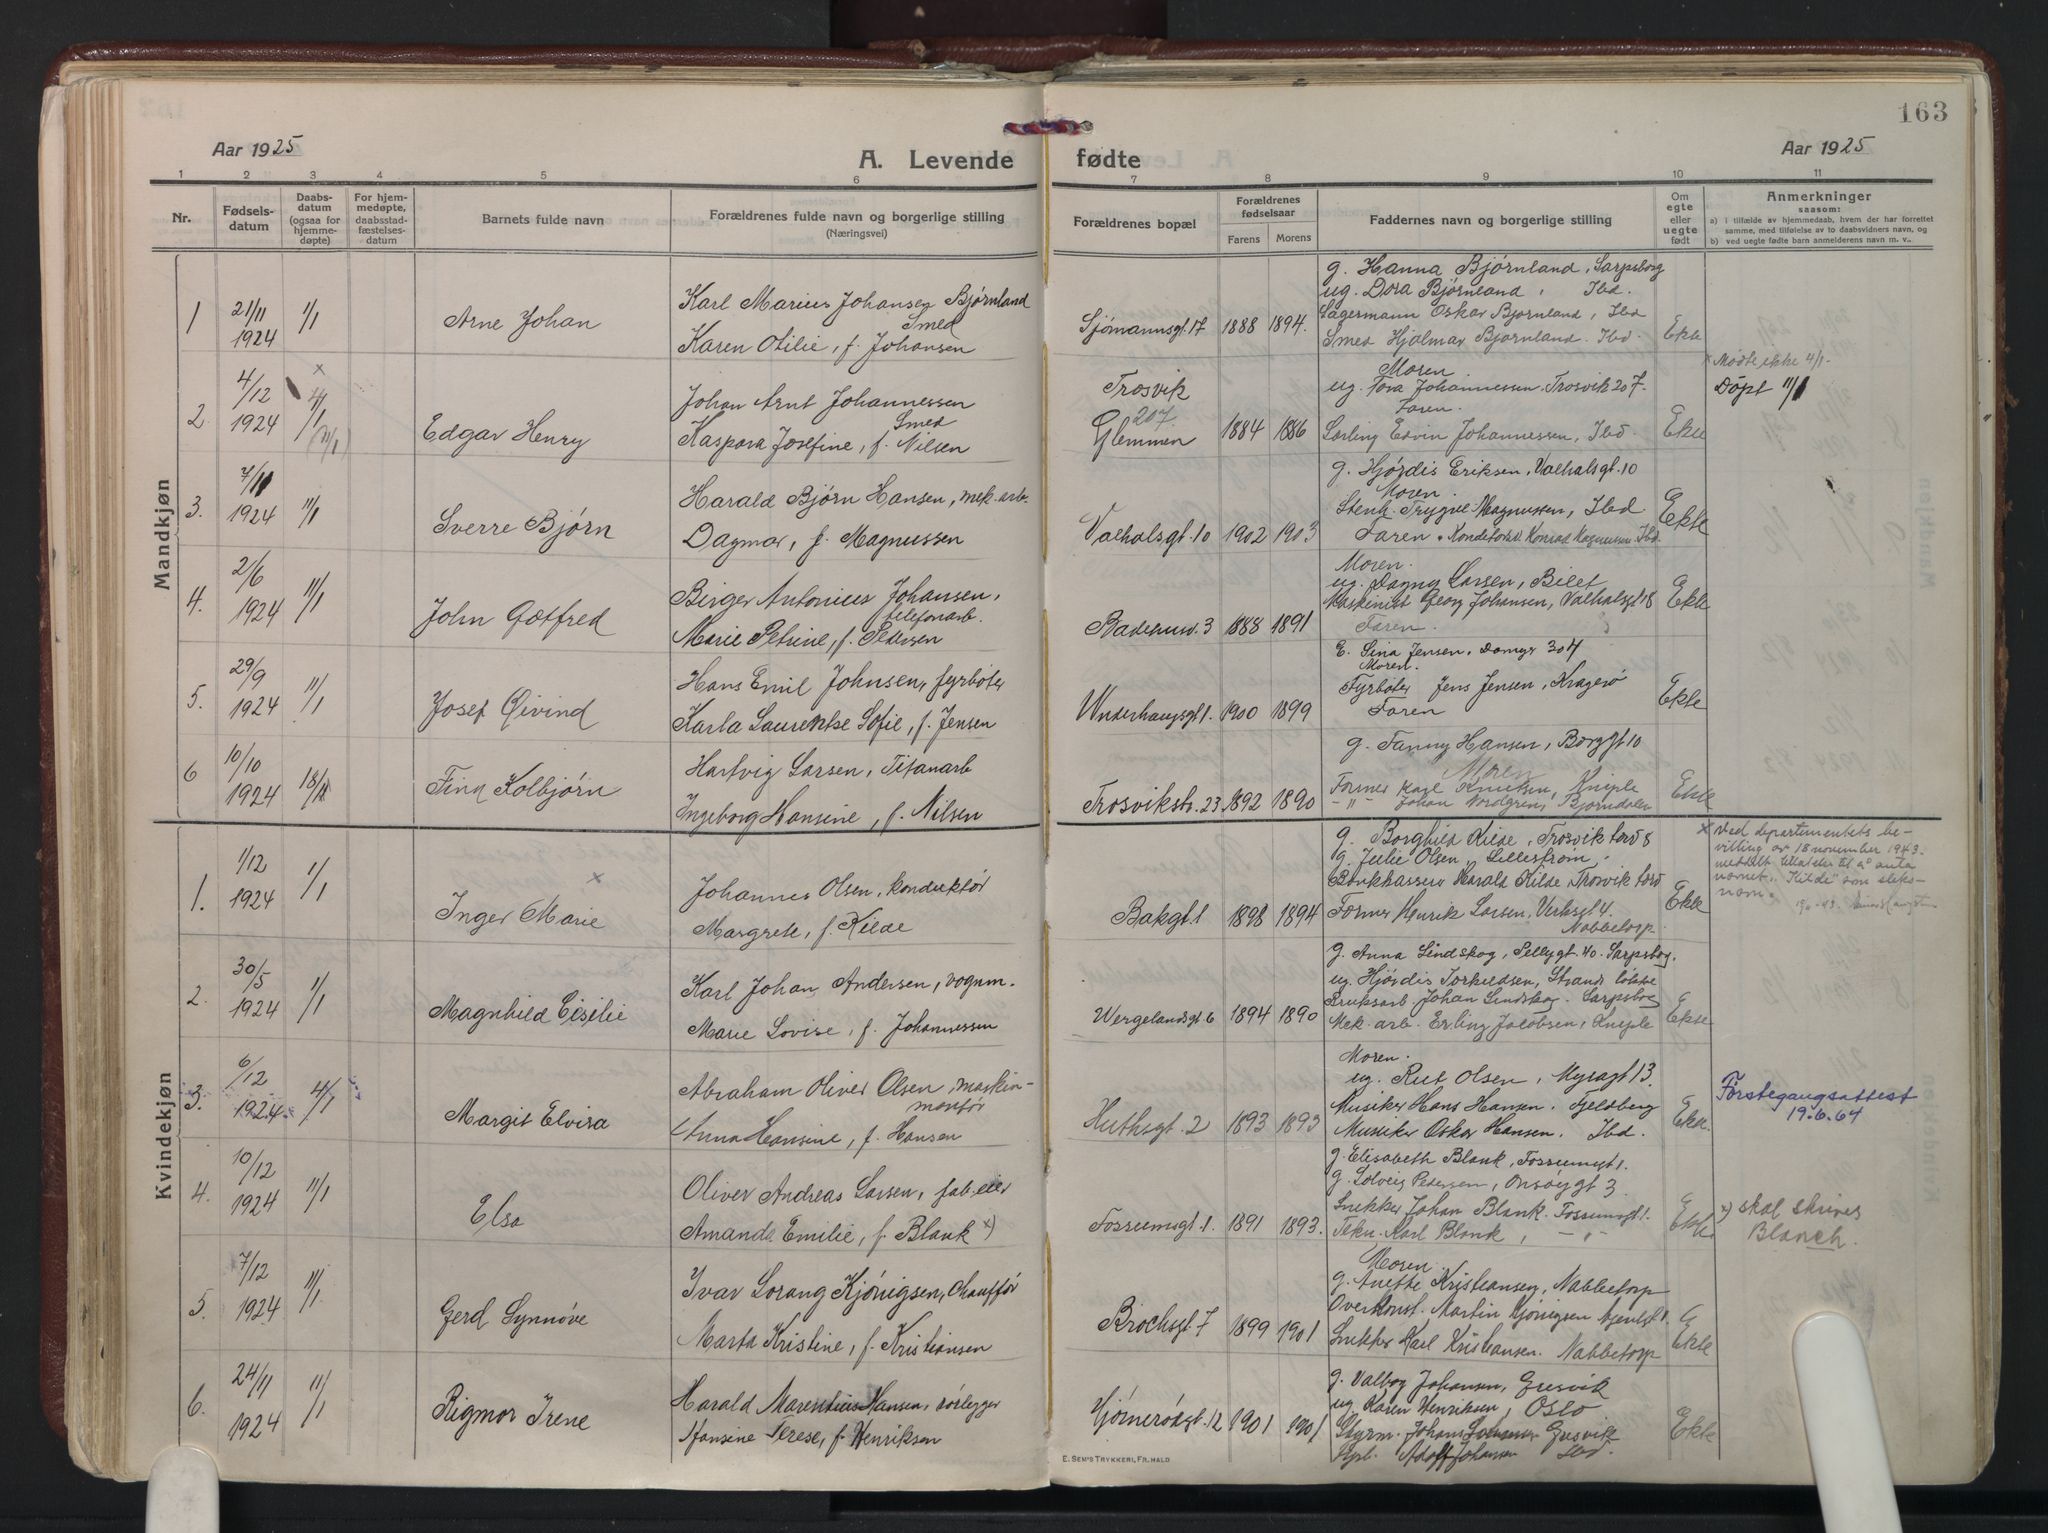 163
Aar 1925
A. Levende fødte
Aar 1925
1 2 3 4 5 6 7 8 9 10 11
Nr.
Fødsels-
datum
Daabs-
datum
(ogsaa for
hjemme-
døpte)
For hjem-
medøpte,
daabsstad-
fæstelses-
datum
Barnets fulde navn
Forældrenes fulde navn og borgerlige stilling
(Næringsvei)
Forældrenes bopæl
Forældrenes
fødselsaar
Farens Morens
Faddernes navn og borgerlige stilling
Om
egte
eller
uegte
født
Anmerkninger
saasom:
a) i tilfælde av hjemmedaab, hvem der har forrettet
samme, med tilføielse av to daabsvidners navn, og
b) ved uegte fødte barn anmelderens navn m. v..
Mandkjøn
1
21/11
1924
1/1
Arne Johan
Karl Marius Johansen Bjørnland
Smed
Karen Otilie, f. Johansen
Sjømannsgt. 17 1888 1894.
g. Hanna Bjørnland, Sarpsborg
ug. Dora Bjørnland, Ibd.
Lagermann Oskar Bjørnland, Ibd
Smed Hjalmar Bjørnland. Ibd.
Ekte
2.
4/12
1924
x
4/1
(11/1)
Edgar Henry
Johan Arnt Johannessen
Smed
Kaspara Josefine, f. Nilsen
Trosvik
207.
Glemmen 1884 1886
Moren
ug. Tora Johannessen. Trosvik 207.
Faren.
Lærling Edvin Johannessen, Ibd.
Ekte
x Mødte ikke 4/1.
Döpt 11/1
3.
7/11
1924
11/1
Sverre Bjørn
Harald Bjørn Hansen, mek. arb.
Dagmar, f. Magnussen
Valhalsgt. 10 1902 1903
g. Hjørdis Eriksen, Valhalsgt. 10
Moren.
Stenh. Trygve Magnussen, Ibd
Faren. Konditorsv. Konrad Magnussen Ibd.
Ekte
4.
2/6
1924
11/1
John Gotfred
Birger Antonius Johansen,
telefonarb.
Marie Petrine, f. Pedersen
Badehusv. 3 1888 1891
Moren.
ug. Dagny Larsen, Bilet
Maskinist Georg Johansen, Valhalsgt 18
Faren.
Ekte
5.
29/9
1924
11/1
Josef Øivind
Hans Emil Johnsen, fyrbøter
Karla Laurentse Sofie, f. Jensen
Wunderhaugsgt 1. 1900 1899
E. Lina Jensen, Damyr 304
Moren.
Fyrbøter Jens Jensen, Kragerö
Faren
Ekte
6
10/10
1924
18/1
Finn Kolbjørn
Hartvig Larsen, Titanarb
Ingeborg Hansine, f. Nilsen
Trosvikstr. 23 1892 1890
g. Fanny Hansen, Borggt 10
Moren
Former Karl Knutsen, Kniple
-"- Johan Nordgren, Bjørndalen
Ekte
Kvindekjøn
1.
1/12
1924
1/1
x
Inger Marie
Johannes Olsen, konduktør
Margrete, f. Kilde
Bakgt. 1 1898 1894
g. Borghild Kilde, Trosvik torv 8
g. Julie Olsen, Lillestrøm,
Bankkasserer Harald Kilde, Trosvik torv
Former Henrik Larsen, Verksgt 4.
Nabbetorp.
Ekte
x Ved departementets be-
villing av 18 november 1943
meddelt tillatelse til å anta
navnet "Kilde" som slekts-
navn.
2.
30/5
1924
1/1
Magnhild Cisilie
Karl Johan Andersen, vognm.
Marie Lovise, f. Johannessen
Wergelandsgt 6 1894 1890
g. Anna Lindskog, Pellygt. 40. Sarpsborg.
ug. Hjørdis Torkildsen, Strands løkke
Bruksarb Johan Lindskog. Sarpsborg
Mek. arb. Erling Jakobsen, Kniple
Ekte
3.
6/12
1924
4/1
Margit Elvira
Abraham Oliver Olsen, maskin-
montør
Anna Hansine, f. Hansen
Huthsgt. 2 1893 1893
Moren.
ug. Rut Olsen, Myragt 13.
Musiker Hans Hansen, Fjeldberg
Musiker Oskar Hansen. Ibd.
Ekte.
Førstegangsattest
19.6.64
4.
10/12
1924
11/1
Elsa
Oliver Andreas Larsen, fab.eier
Amanda Emilie, f. Blank x)
Fossumsgt. 1. 1891 1893.
g. Elisabeth Blank, Fossumsgt 1.
g. Solveig Pedersen, Onsøygt 3.
Snekker Johan Blank. Fossumsgt 1.
Tekn. Karl Blank, -"-
Ekte
x) skal skrives
Blanch.
5.
7/12
1924
11/1
Gerd Synnøve
Ivar Lorang Kjönigsen, Chauffør
Marta Kristine, f. Kristiansen
Brochsgt 7 1899 1901
Moren.
g. Anette Kristiansen, Nabbetorp
Overkonst. Martin Kjönigsen
Snekker Karl Kristiansen. Nabbetorp
Ekte
6.
24/11
1924
11/1
Rigmor Irene
Harald Marentius Hansen, rörlegger
Hansine Terese, f. Henriksen
Gjørnerödgt. 12 1901 1901
g. Valborg Johansen, Gresvik
ug Karen Henriksen, Oslo
Styrm. Johans Gresvik
Adolf Johansen Ibd.
Ekte
E. SEM'S TRYKKERI, FR.HALD